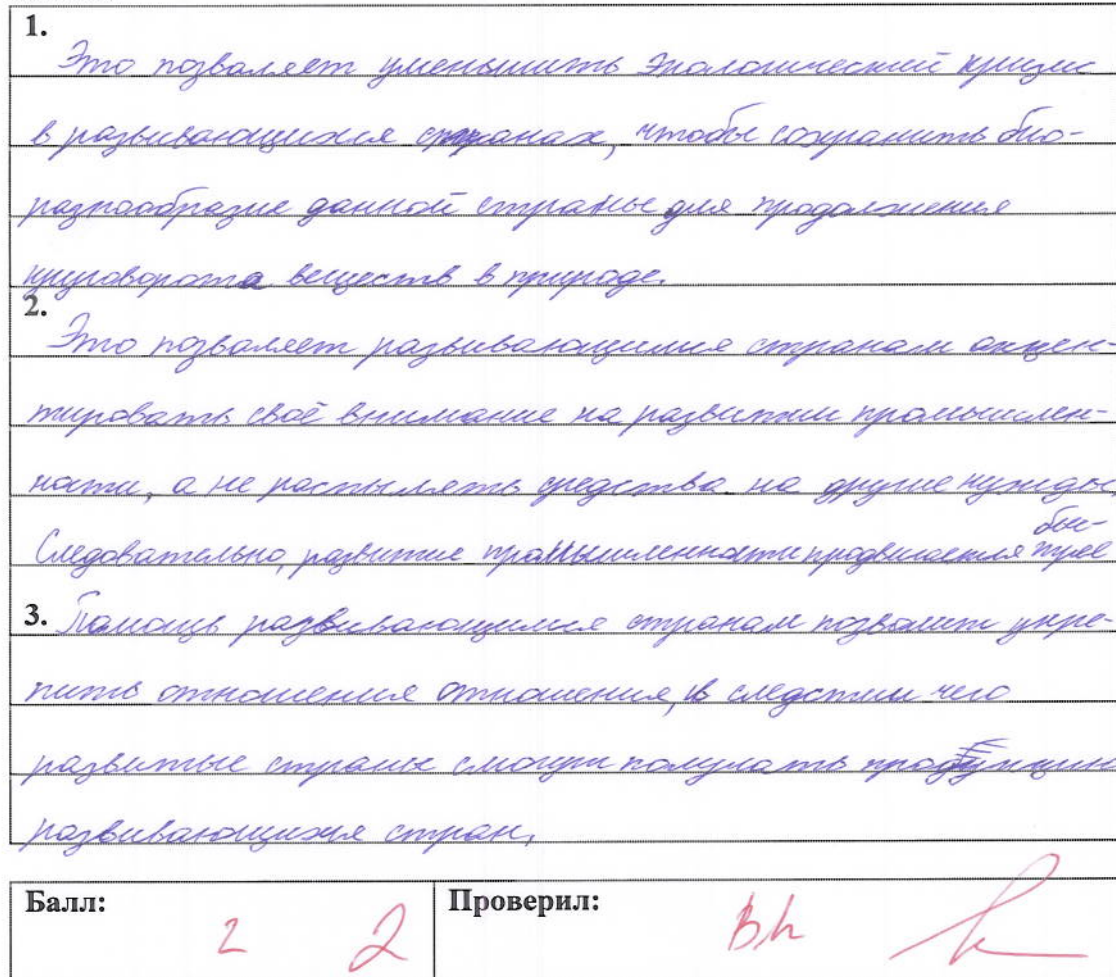 1.
Это позволяет уменьшить экологический кризис
в развивающихся странах, чтобы сохранить био-
разнообразие данной страны для продолжения
круговорота веществ в природе.
2.
Это позволяет развивающимся странам акцен-
тировать своё внимание на развитии промышлен-
ности, а не распылять средства на другие нужды.
Следовательно, развитие промышленности продвигается быс-
трее
3. Помощь развивающимся странам позволит укре-
пить отношения отношения, в следствии чего
развитые страны смогут получать продукцию
развивающихся стран.
Балл: 2 2 Проверил: